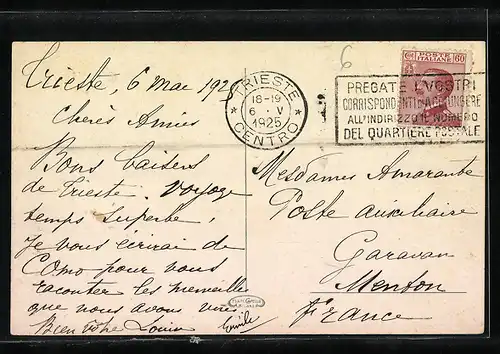 Trieste, 6 Mai 1925
Chères Amies
Bons baisers
de Trieste. Voyage
temps superbe,
Je vous écrirai de
Como pour vous
raconter les merveilles
que nous avons vues.
Bien vôtre Louise
Emile
6
POSTE ITALIANE
60
TRIESTE
18-19
6 · V
1925
* CENTRO *
PREGATE I VOSTRI
CORRISPONDENTI D'AGGIUNGERE
ALL'INDIRIZZO IL NUMERO
DEL QUARTIERE POSTALE
Mesdames Amarante
Poste auxiliaire
Garavan
Menton
France